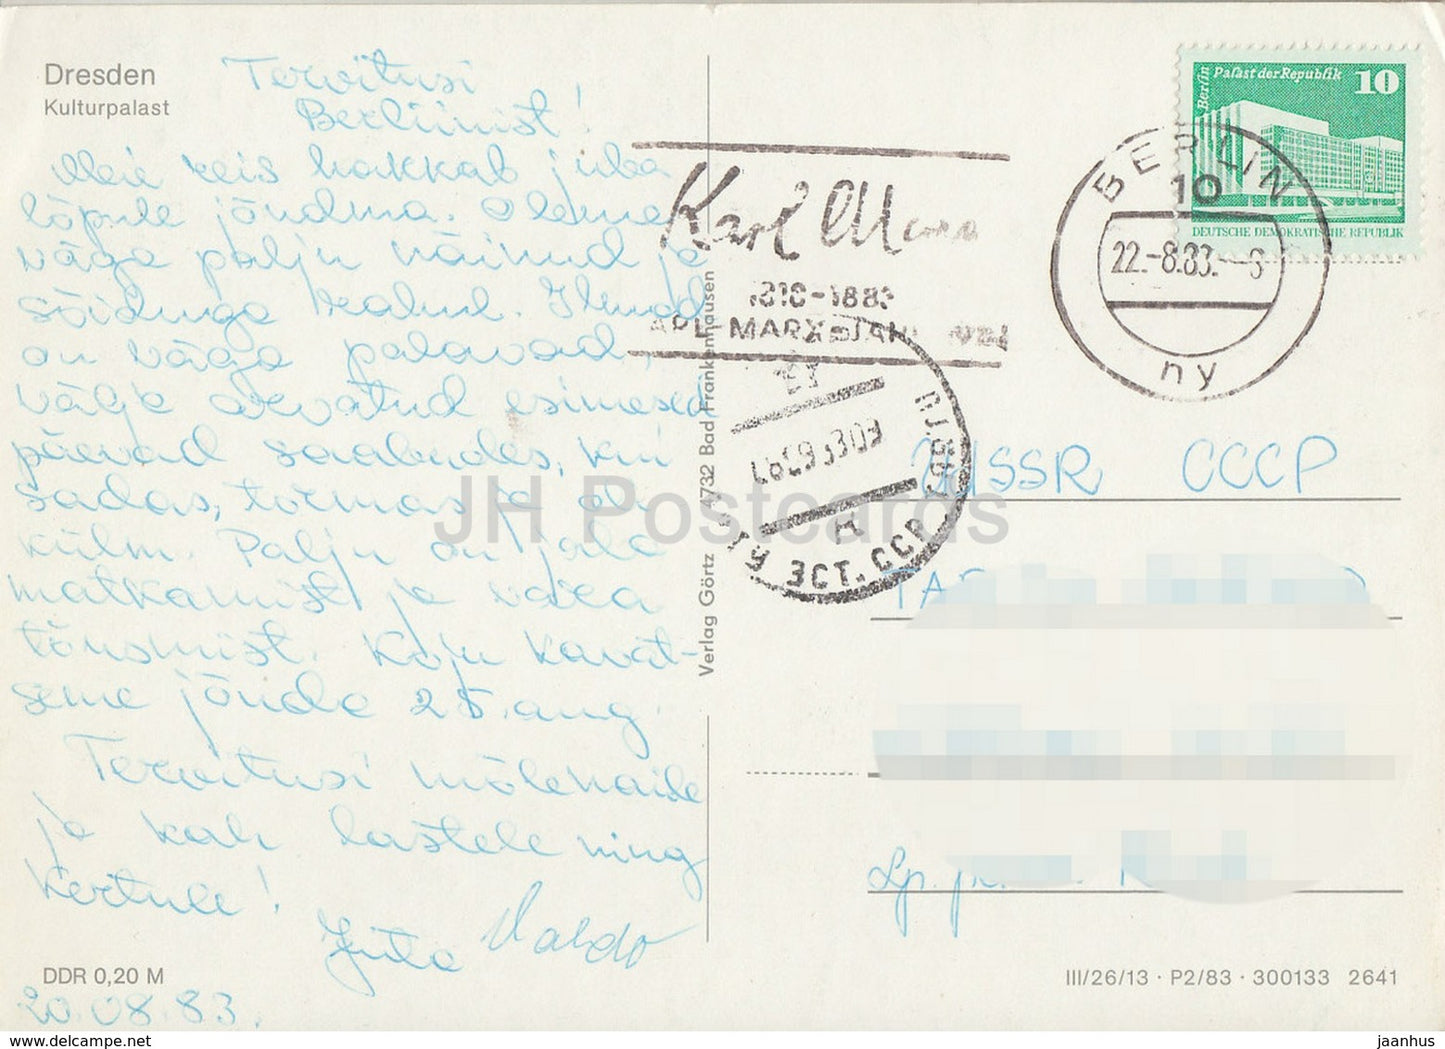 Dresden
Kulturpalast
Tervitusi
Berliinist!
Meie reis hakkab juba
lõpule jõudma. Oleme
väga palju näinud ja
sõiduga rahul. Ilmad
on väga palavad,
välja arvatud esimesed
päevad saabudes, kui
sadas, tormas ja oli
külm. Palju on jala
matkamist ja vara
tõusmist. Koju kavat-
seme jõuda 25. aug.
Tervitusi mõlemaile
ja kah lastele ning
Kertule!
Jüta Valdo
DDR 0,20 M
20.08.83.
Verlag Görtz 4732 Bad Frankenhausen
Karl Marx
1818-1883
MARX-JAHR
Berlin Palast der Republik 10
DEUTSCHE DEMOKRATISCHE REPUBLIK
BERLIN
10
22.-8.83.
ny
ЭСТ. ССР
SSR CCCP
III/26/13 · P2/83 · 300133 2641
JH Postcards
hip.com/u/jaanhus